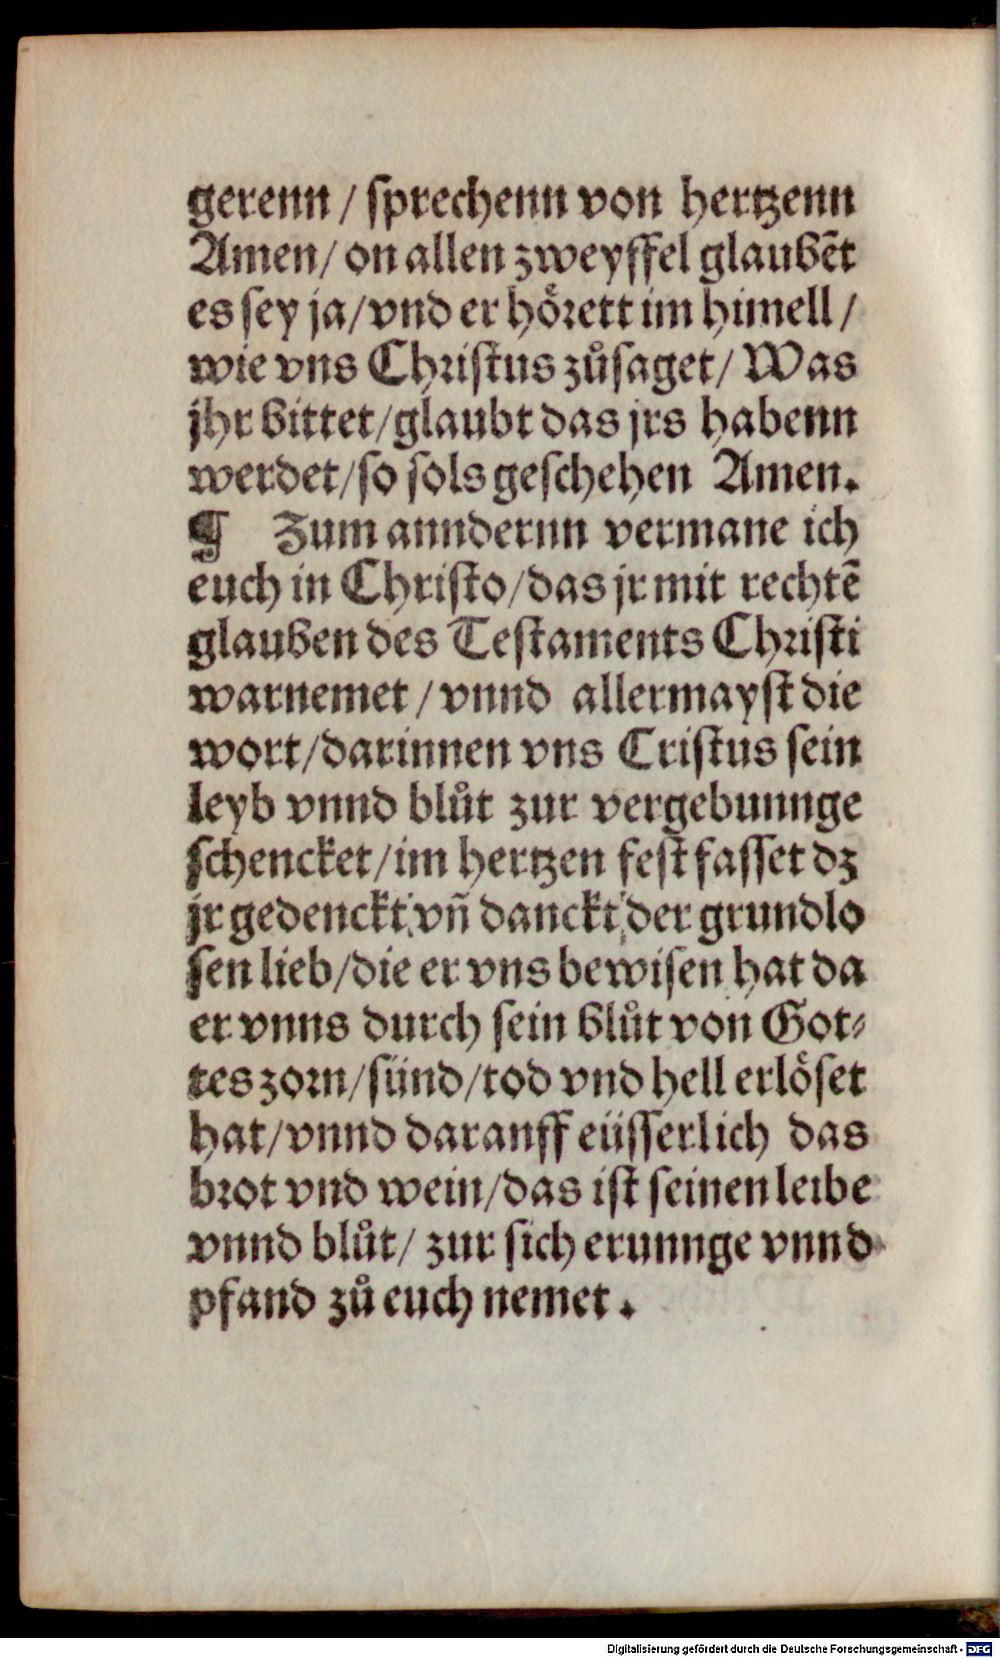 gerenn / sprechenn von hertzenn
Amen / on allen zweyffel glaubēt
es sey ja / vnd er hoͤrett im himell /
wie vns Christus zůsaget / Was
jhr bittet / glaubt das jrs habenn
werdet / so sols geschehen Amen.
¶ Zum anndernn vermane ich
euch in Christo / das jr mit rechtē
glauben des Testaments Christi
warnemet / vnnd allermayst die
wort / darinnen vns Cristus sein
leyb vnnd blůt zur vergebunnge
schencket / im hertzen fest fasset dz
jr gedenckt / vn̄ danckt / der grundlo
sen lieb / die er vns bewisen hat da
er vnns durch sein blůt von Got⸗
tes zorn / sünd / tod vnd hell erlöset
hat / vnnd daranff eüsserlich das
brot vnd wein / das ist seinen leibe
vnnd blůt / zur sich erunnge vnnd
pfand zů euch nemet.
Digitalisierung gefördert durch die Deutsche Forschungsgemeinschaft - DFG